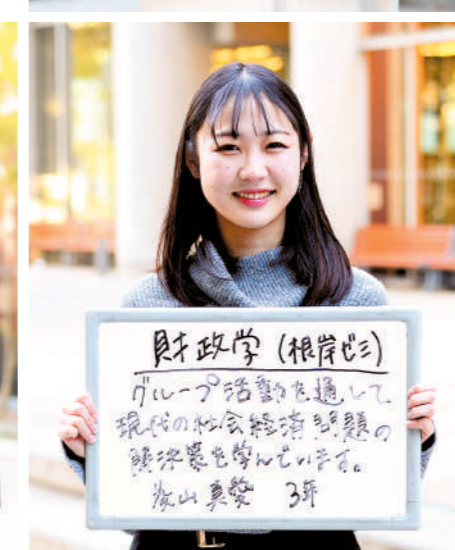 財政学 (根岸ゼミ)
グループ活動を通して、
現代の社会経済問題の
解決策を学んでいます。
山 真 3年